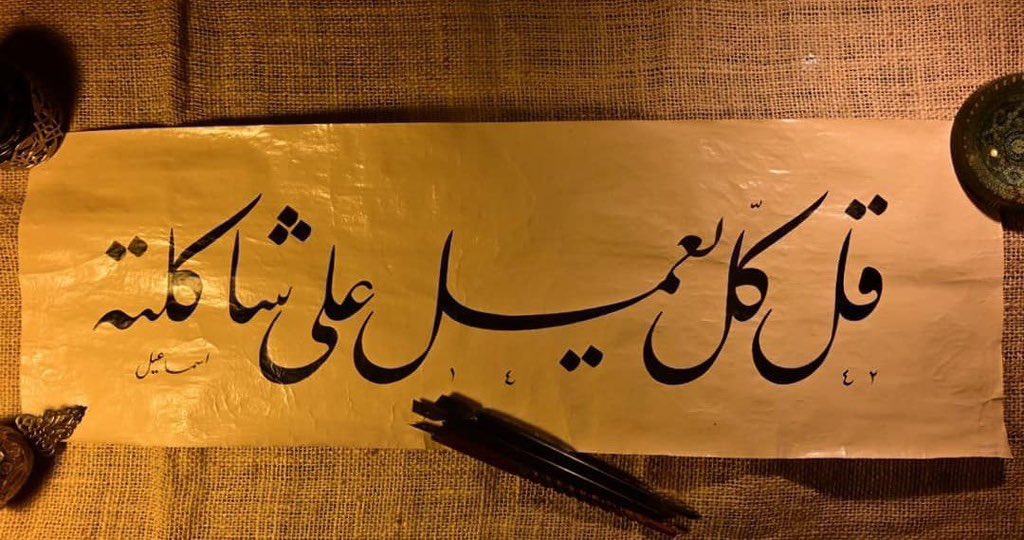 قل كلّ يعمل على شاكلته
اسماعيل
١٤٤٢